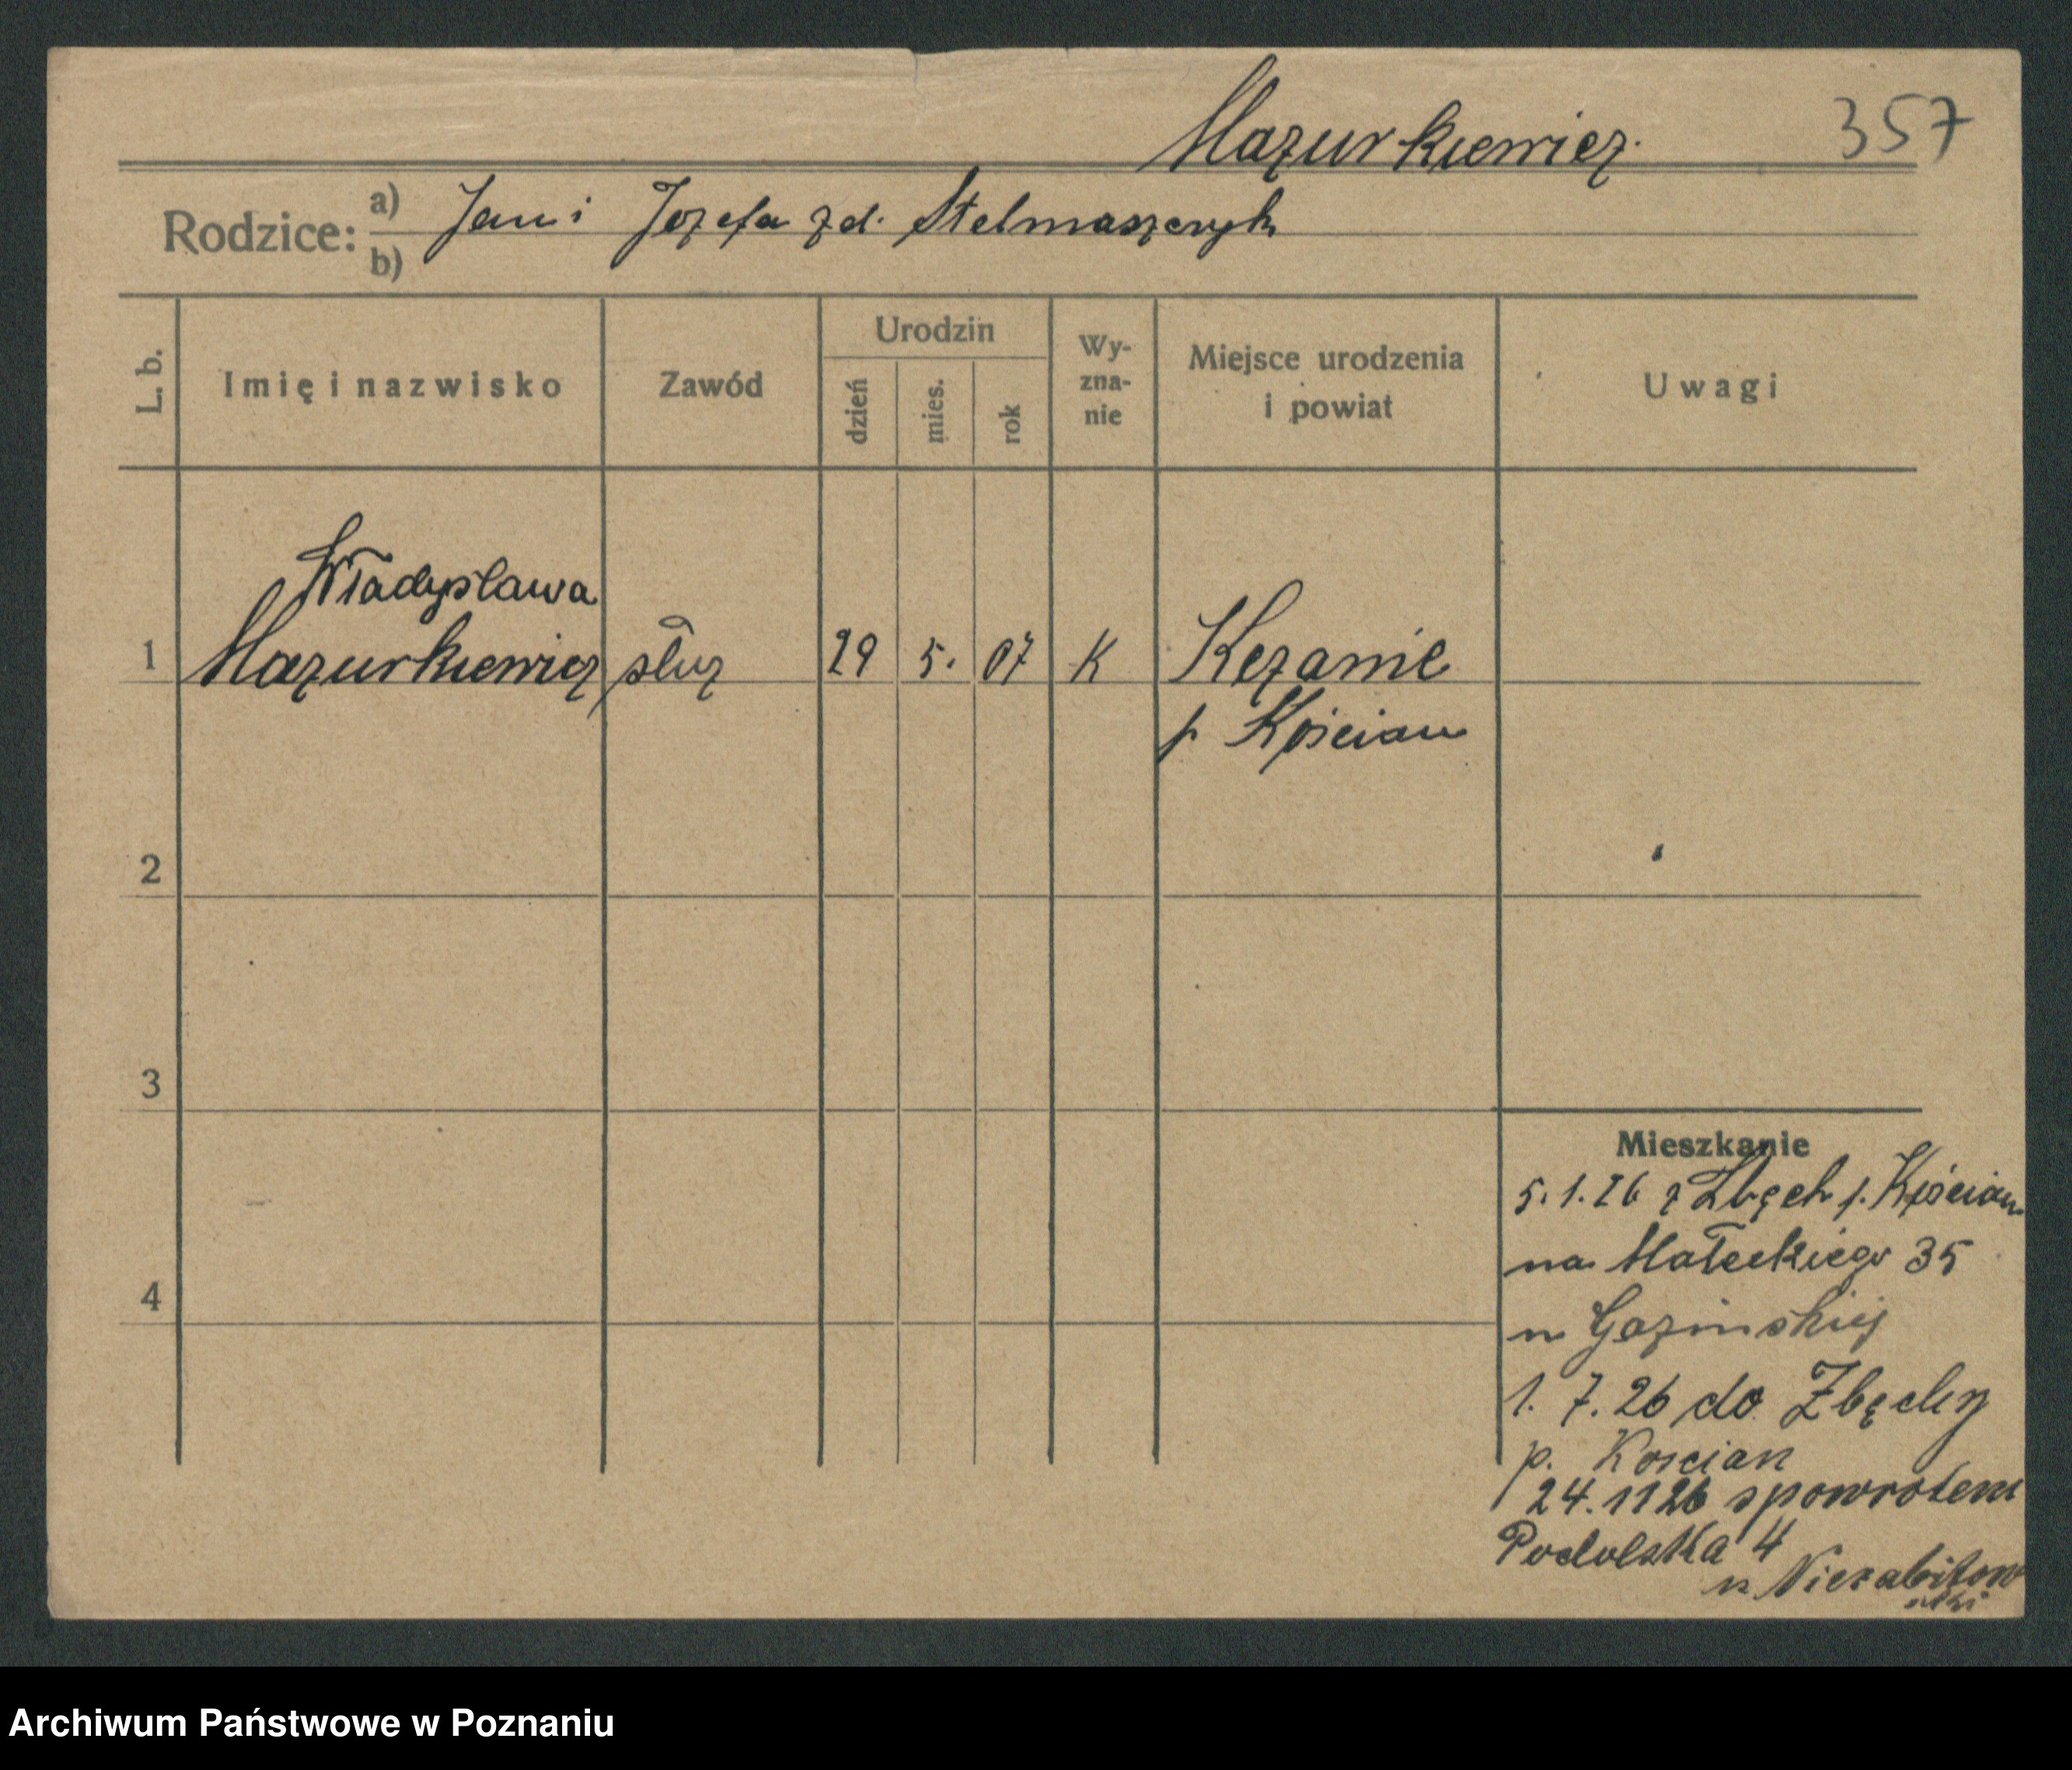 Mazurkiewicz. 357
Rodzice: a) Jan i Jozefa z d. Stelmaszczyk
b)
L. b. Imię i nazwisko Zawód Urodzin dzień mies. rok Wy-zna-nie Miejsce urodzenia i powiat Uwagi
Władysława
1 Mazurkiewicz służ 29 5. 07 K
p Kościan
2
3
Mieszkanie
5. 1. 26 z Zbęch p. Kościan
na Małeckiego 35
4
1. 7. 26 do Zbęchy
p. Koscian
24. 11 26 spowrotem
Podolska 4
u Niezabitow
ski
Archiwum Państwowe w Poznaniu